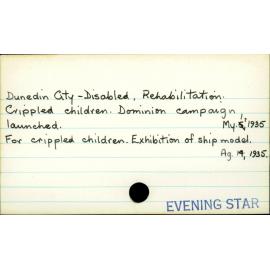 Dunedin City - Disabled, Rehabilitation.
Crippled children. Dominion campaign
launched. My. 5, 1935
For crippled children. Exhibition of ship model.
Ag. 14, 1935.
EVENING STAR